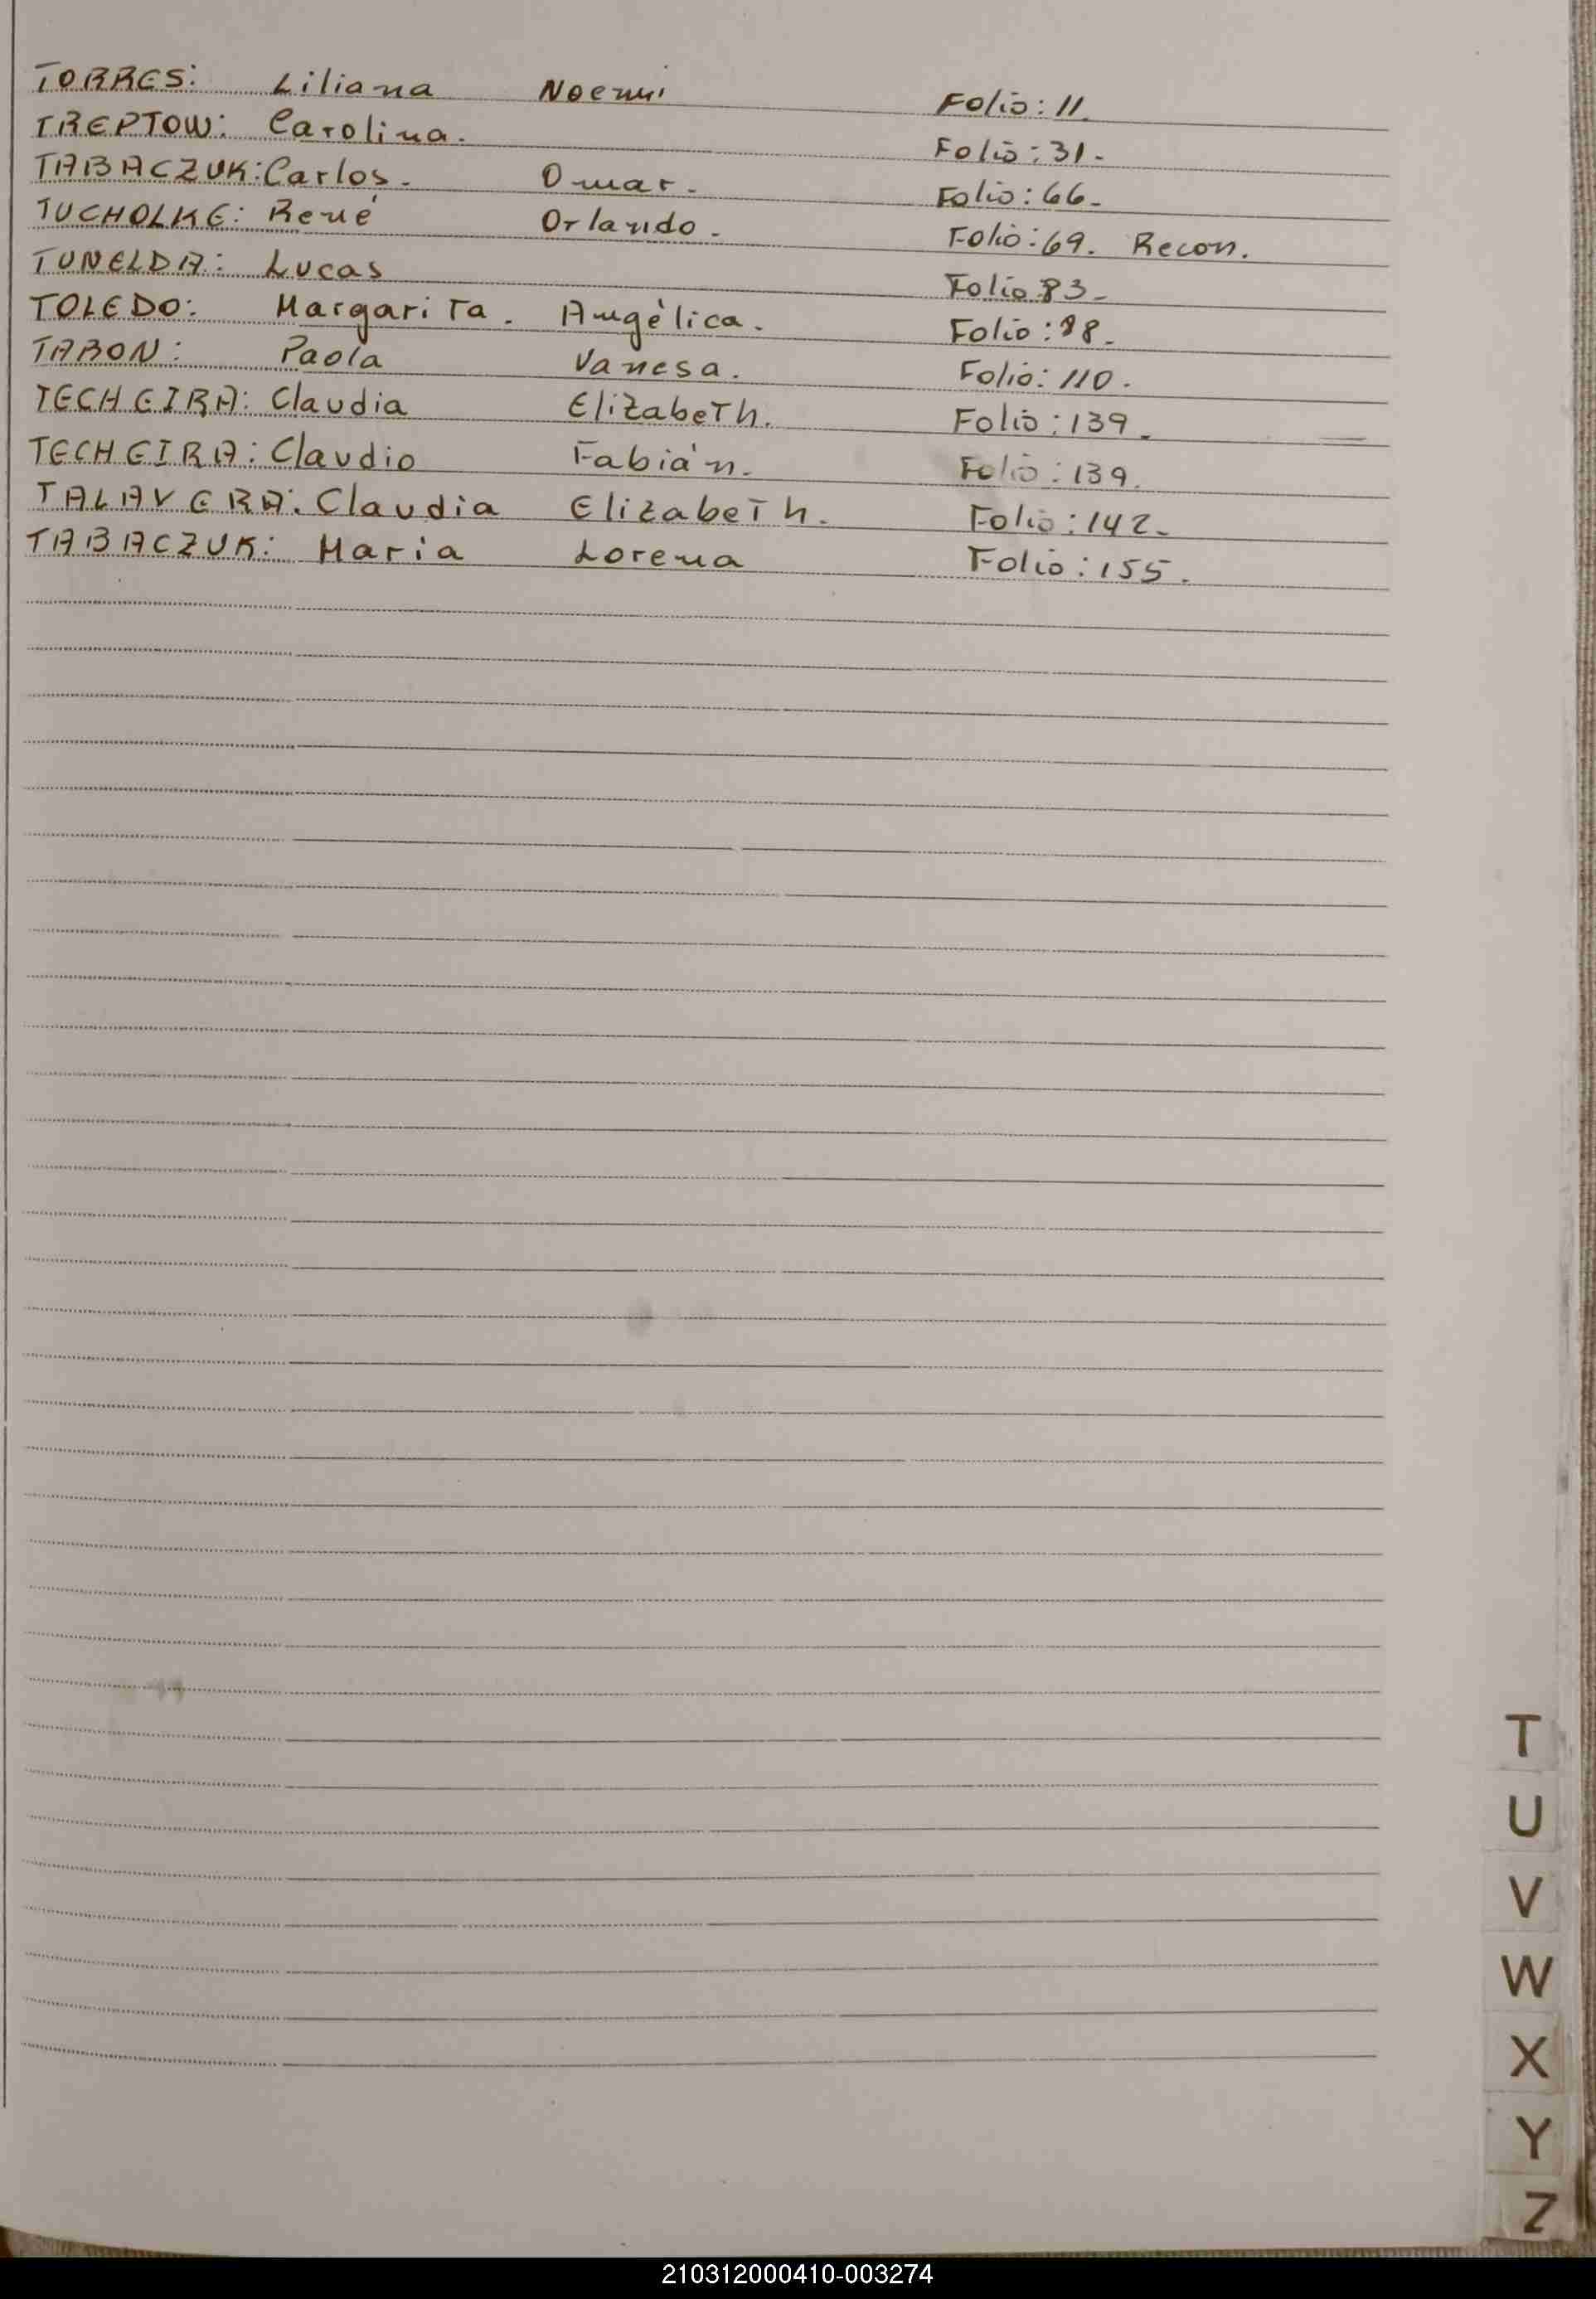 TORRES: Liliana Noemí Folio: 11.
TREPTOW: Carolina. Folio: 31.-
TABACZUK: Carlos. Omar. Folio: 66.-
TUCHOLKE: René Orlando. Folio: 69. Recon.
TUNELDA: Lucas Folio 83.-
TOLEDO: Margarita. Angélica. Folio: 98.-
TABON: Paola Vanesa. Folio: 110.
TECHEIRA: Claudia Elizabeth. Folio: 139.-
TECHEIRA: Claudio Fabián. Folio: 139.
TALAVERA: Claudia Elizabeth. Folio: 142.-
TABACZUK: Maria Lorena Folio: 155.
T
U
V
W
X
Y
Z
210312000410-003274